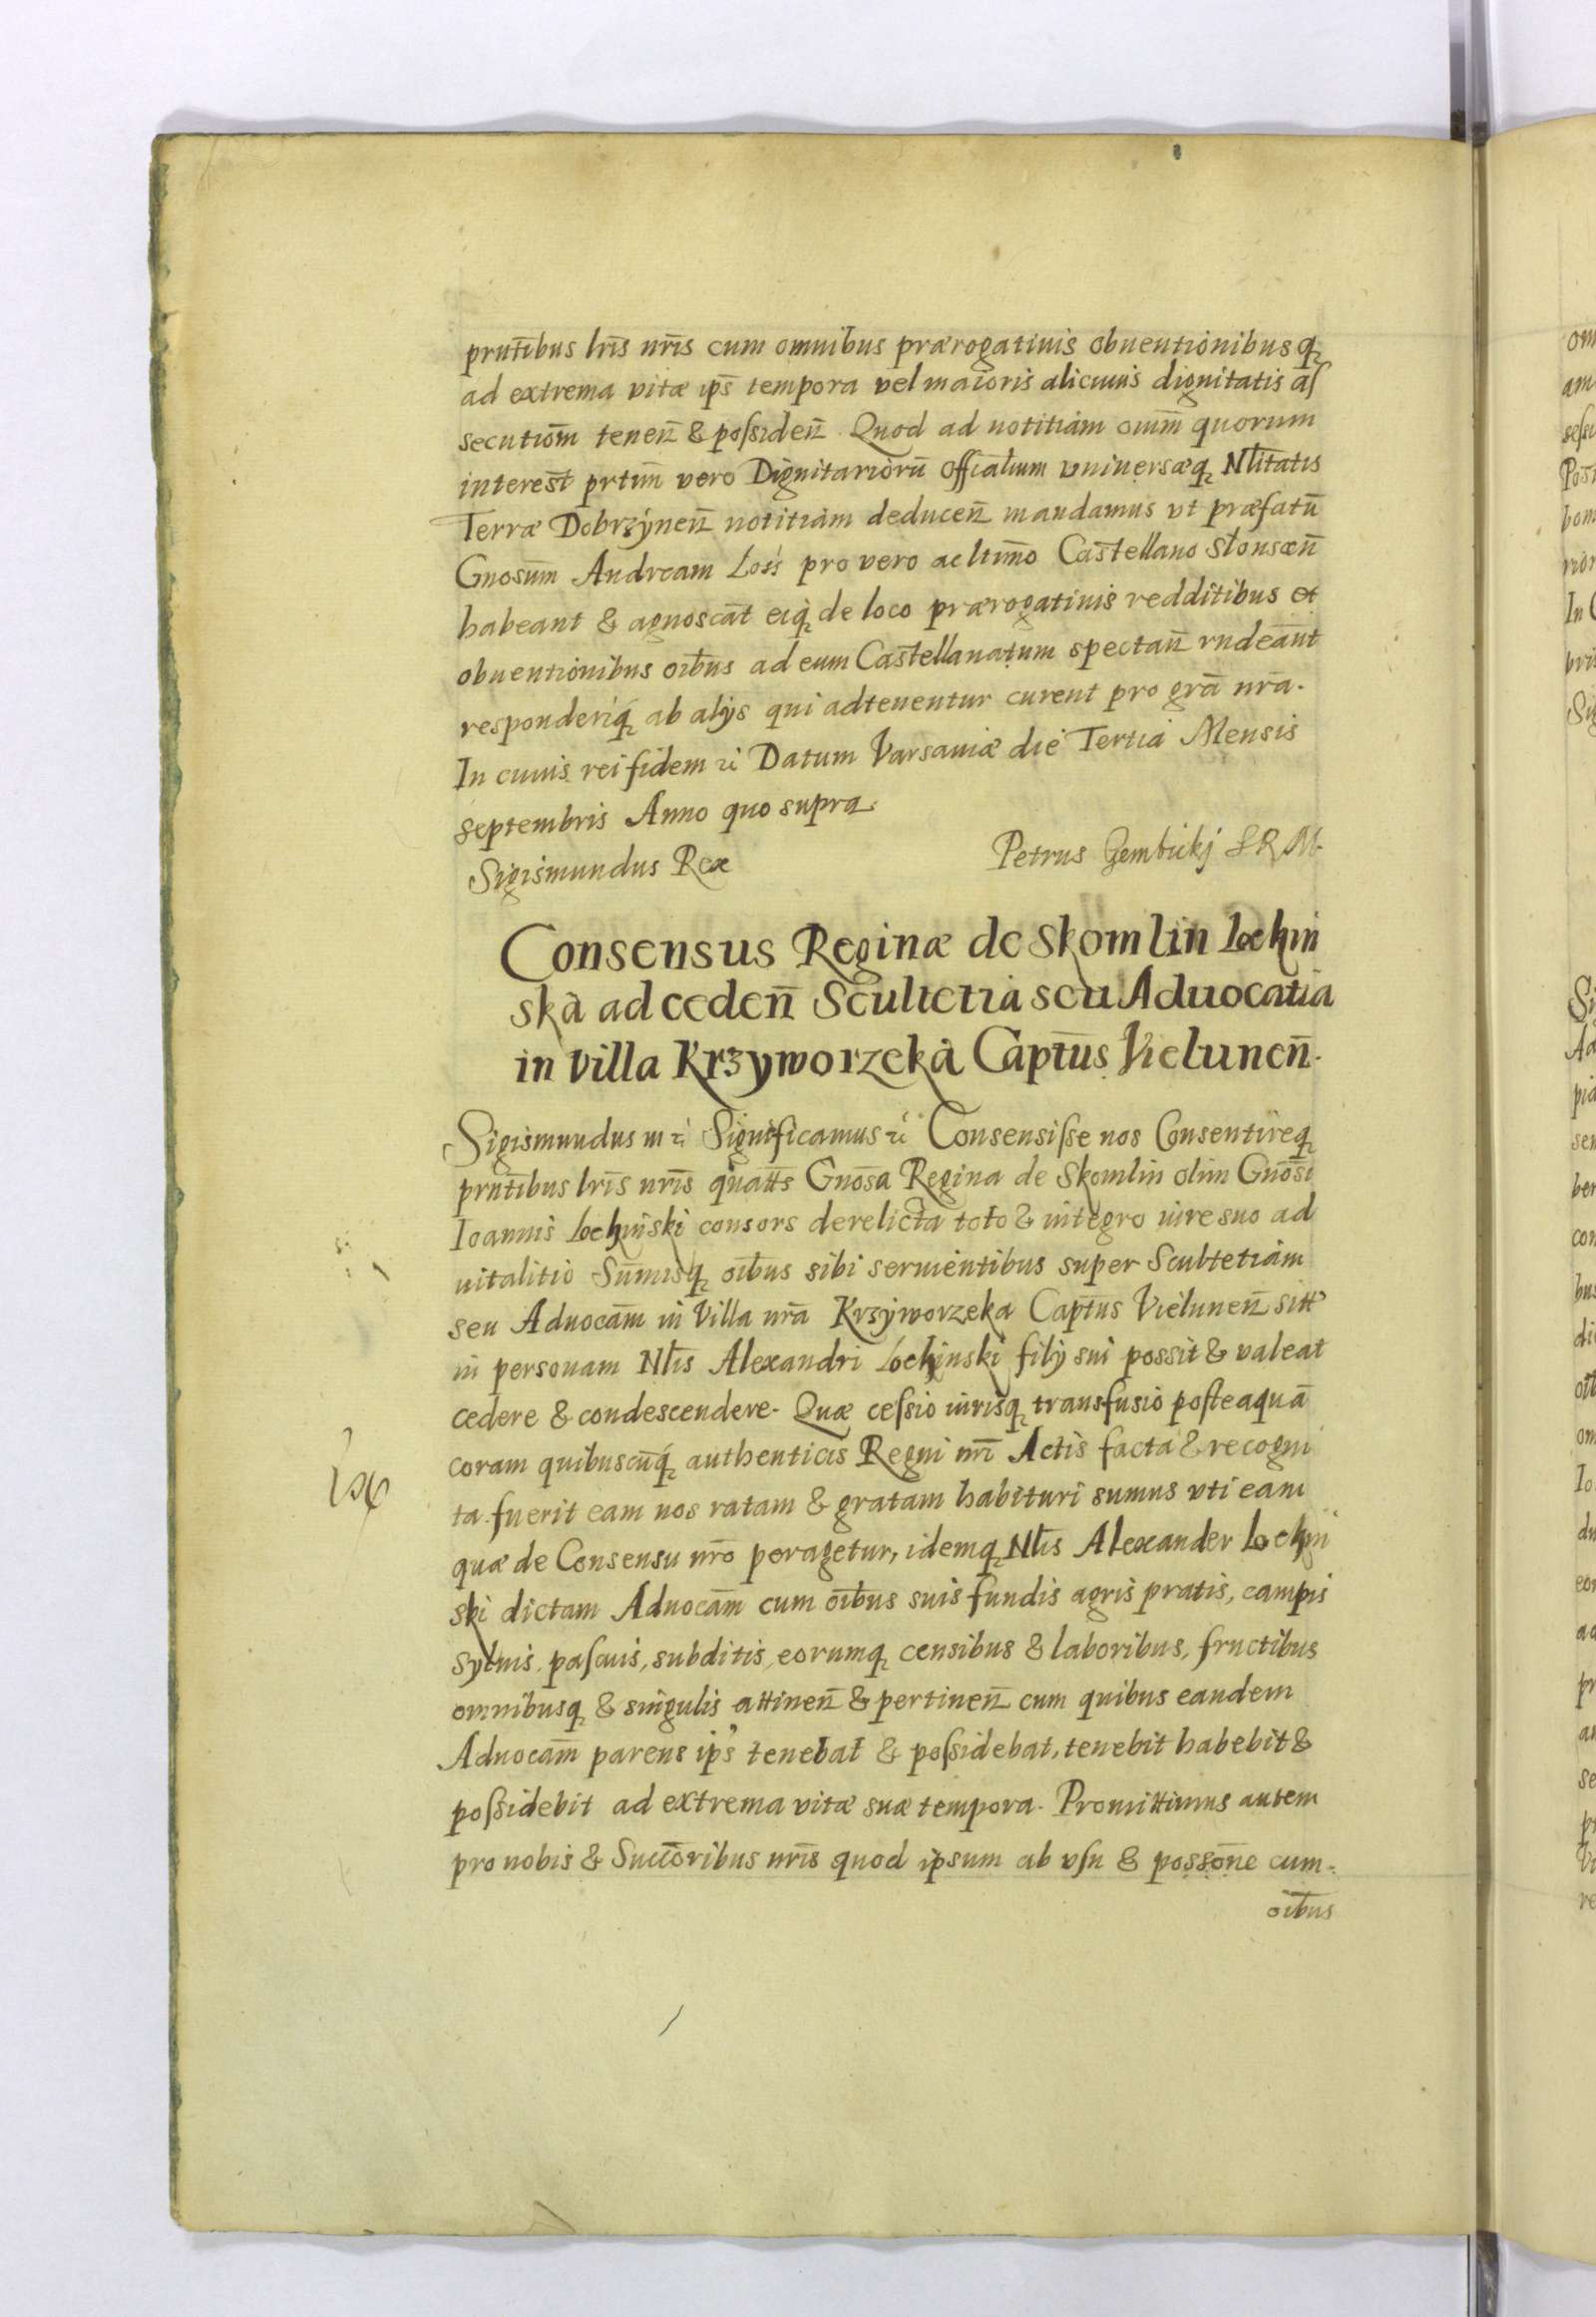 prnt̄ibus lrīs nrīs cum omnibus prærogatiuis obuentionibusq̧
ad extrema vitæ ip̄s tempora vel maioris alicuius dignitatis aſ
secutiōm teneñ & poſsideñ. Quod ad notitiam oium̄ quorum
interest̄ prtim̄ vero Dignitariorū Offīalium vniuersæq̧ Nl̄itatis
Terræ Dobrzyneñ notitiam deduceñ mandamus vt præfatū
Gnosum̄ Andream Loś pro vero ac ltimo̅ Castellano Słonsceñ
habeant & agnoscāt eiq̧ de loco prærogatiuis redditibus et
obuentionibus oīb̄us ad eum Castellanatum spectañ rndeānt
responderiq̧ ab alijs qui adtenentur curent pro gr̄a nr̄a.
In cuius rei fidem rc̄ Datum Varsauiæ die Tertia Mensis
septembris Anno quo supra.
Sigismundus Rex
Petrus Gembickj S R M.
Consensus Reginæ de Skomlin Lochin
ska ad cedeñ Scultetia seu Aduocatia
in villa Krzyworzeka Capt̄us Vieluneñ.
Sigismundus III rc̄ Significamus rc̄ Consensiſse nos Consentireq̧
prnt̄ibus lrīs nrīs quatt̄s Gnos̄a Regina de Skomlin olim Gnōsi
Ioannis Lochinski consors derelicta toto & integro iure suo ad
uitalitio Sum̄isq̧ oīb̄us sibi seruientibus super Scultetiam
seu Aduocam̄ in Villa nr̄a Krzyworzeka Capt̄us Vieluneñ sitt
in personam Nl̄is Alexandri Lochinski filÿ sui possit & valeat
cedere & condescendere. Quæ ceſsio iurisq̧ transfusio posteaquā
coram quibuscūq̧ authenticis Regni nr̄i Actis facta & recogni
ta fuerit eam nos ratam & gratam habituri sumus vti eam
quæ de Consensu nr̄o peragetur, idemq̧ Nl̄is Alexander Lochin
ski dictam Aduocam̄ cum oīb̄us suis fundis agris pratis, campis
syluis, paſcuis, subditis, eorumq̧ censibus & laboribus, fructibus
omnibusq̧ & singulis attineñ & pertineñ cum quibus eandem
Aduocam̄ parens ip̄s tenebat & poſsidebat, tenebit habebit &
poſsidebit ad extrema vitæ suæ tempora. Promittimus autem
pro nobis & Succōribus nrīs quod ipsum ab vſu & possōne cum
oīb̄us